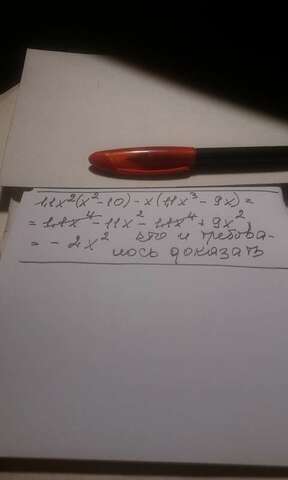 11x²(x²-10) - x(11x³ - 9x) =
= 11x⁴ - 11x² - 11x⁴ + 9x² =
= - 2x² что и требова-
лось доказать